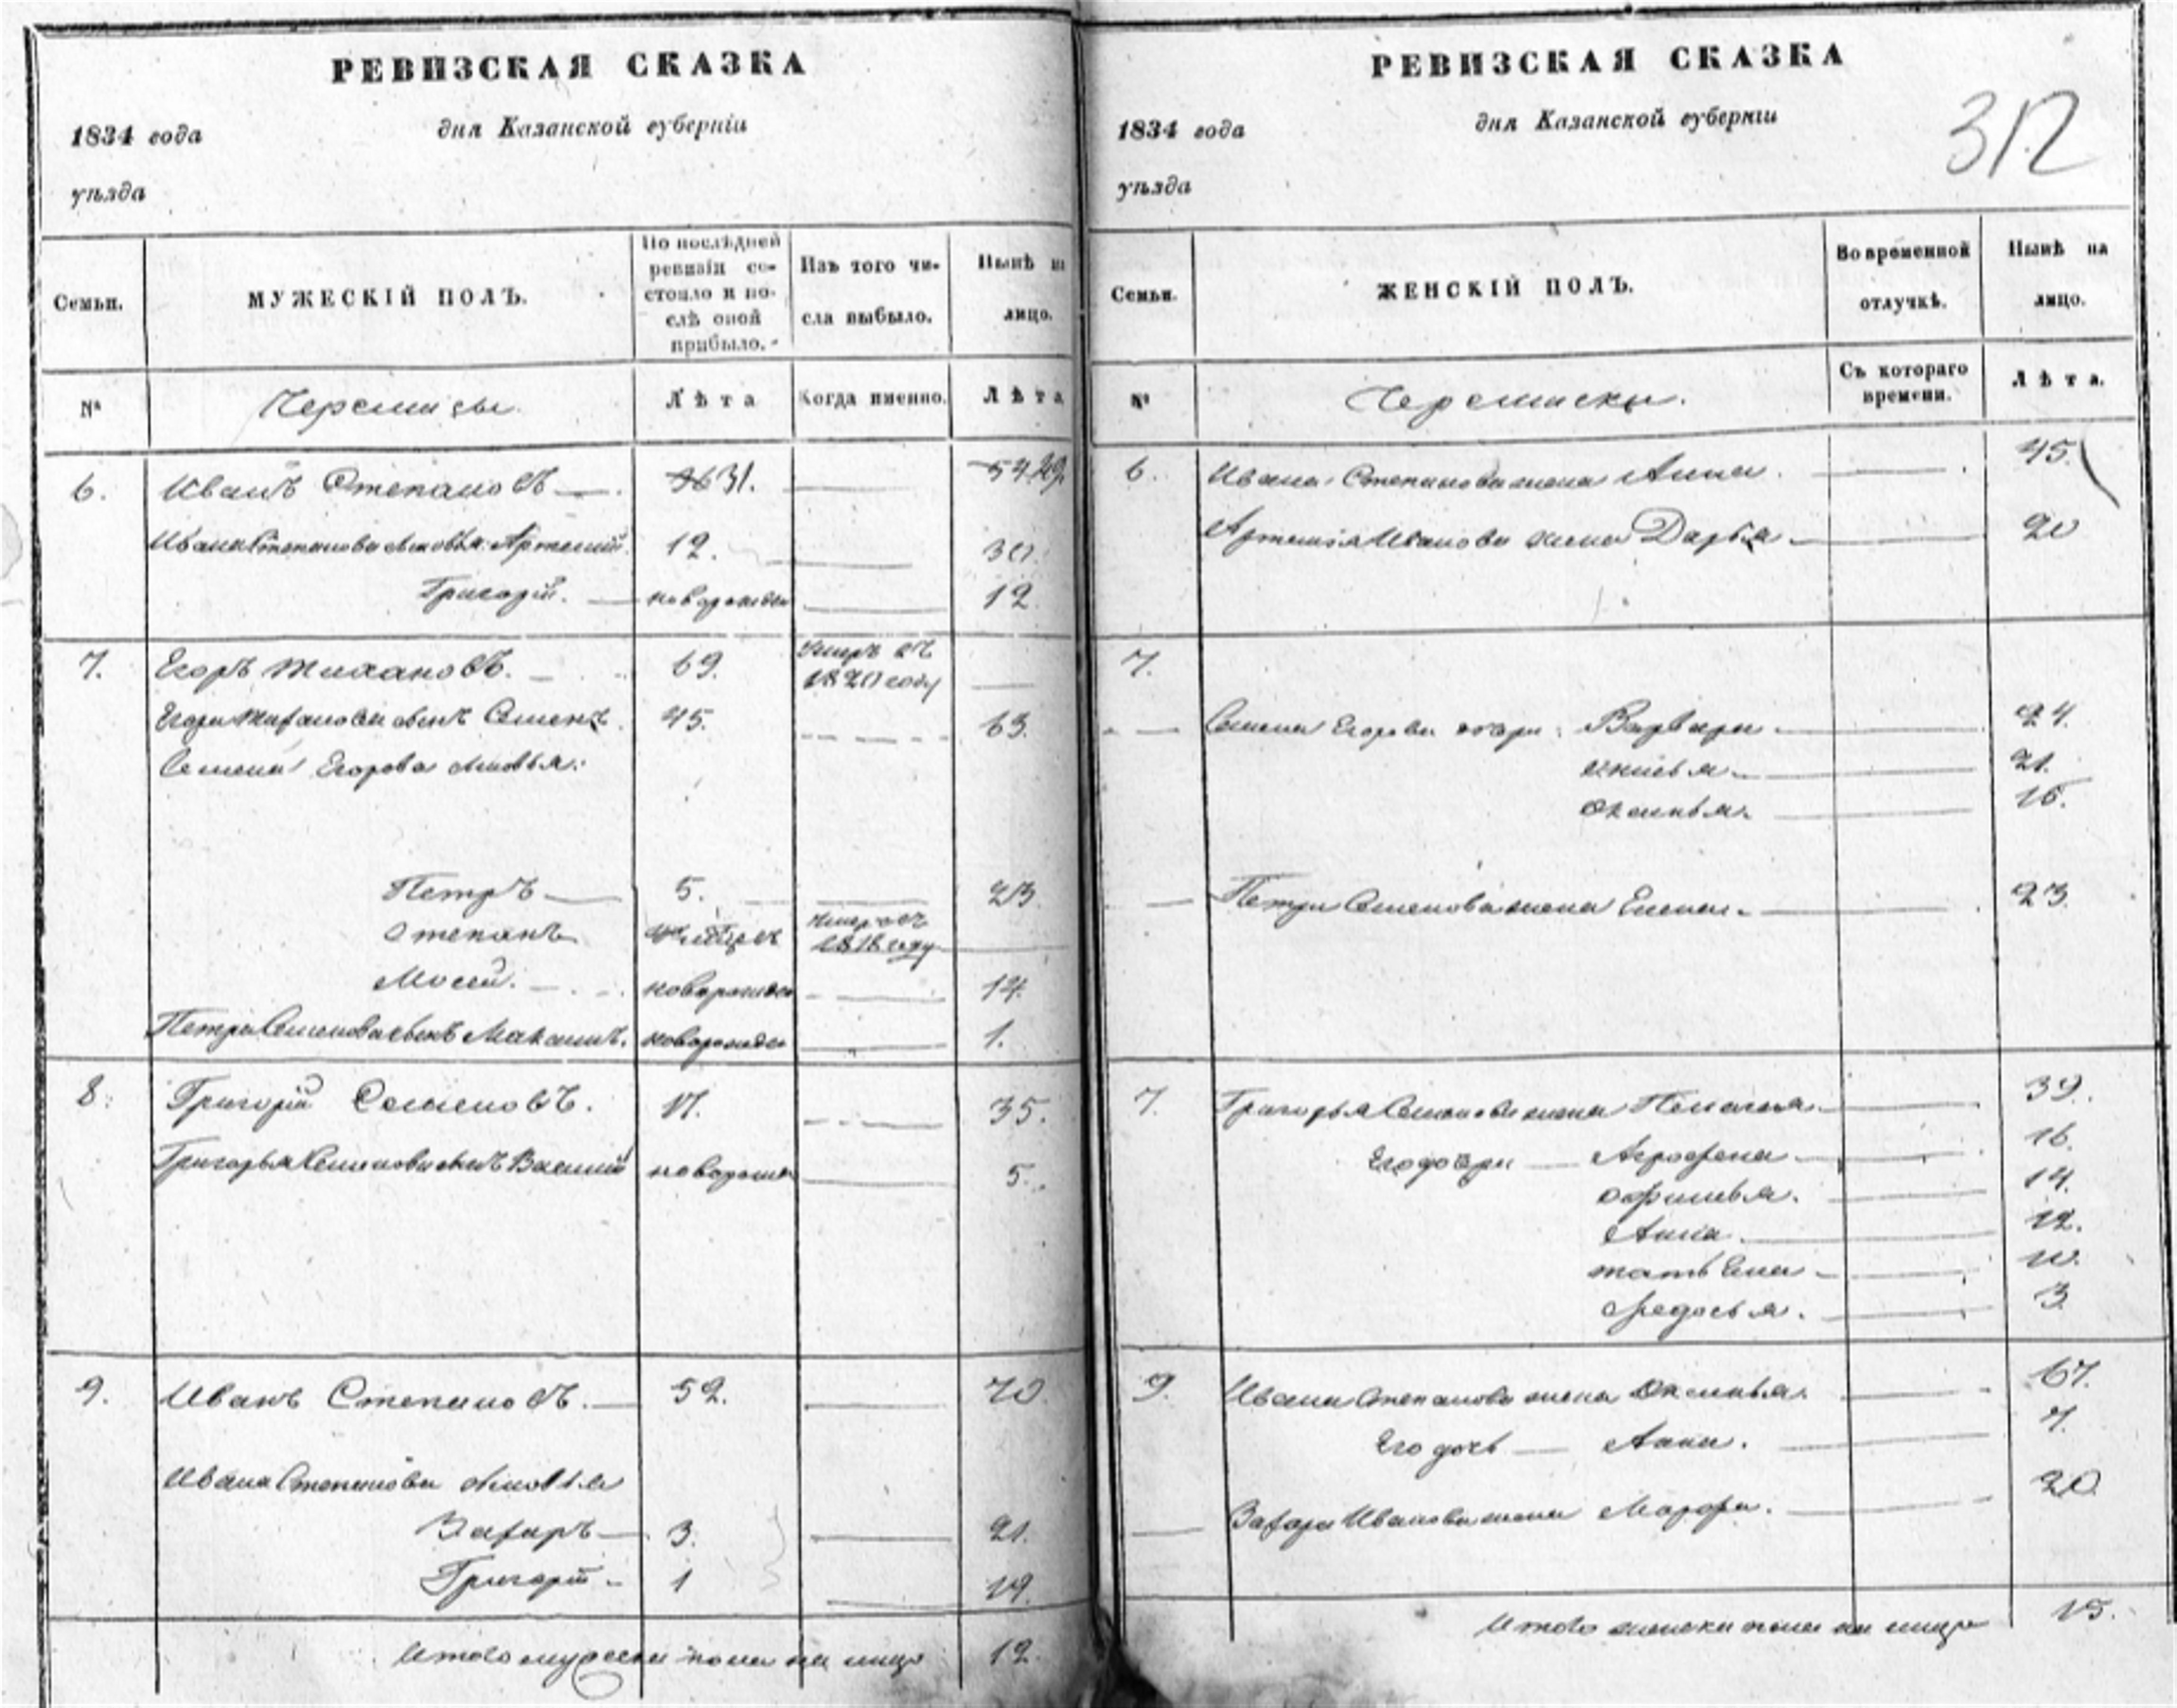 РЕВИЗСКАЯ СКАЗКА
1834 года
дня Казанской губерніи
уѣзда
Семьи.
МУЖЕСКІЙ ПОЛЪ.
По послѣдней ревизіи состояло и послѣ оной прибыло.
Изъ того числа выбыло.
Нынѣ на лицо.
№
Черемисы
Лѣта
Когда именно.
Лѣта
6. Иванъ Степановъ 31.
Ивана Степанова сыновья: Артемій 12. 30.
Григорій. новорожден 12
7. Егоръ 69. Умеръ въ 1820 году
Егора сынъ Семенъ 45. 63.
Семена Егорова сыновья:
Петръ 5. 23.
Степанъ Умеръ въ 1818 году
Мосей. новорожден 14.
Петра Семенова сынъ Максимъ. новорожден 1.
8. Григорій Семеновъ. 17. 35.
Григорья Семенова сынъ Василій новорожден 5.
9. Иванъ Степановъ. 52. 70.
Ивана Степанова сыновья
Захаръ 3. 21.
Григорій 1 19.
Итого мужеска пола на лицо 12.
РЕВИЗСКАЯ СКАЗКА
312
1834 года
дня Казанской губерніи
уѣзда
Семьи.
ЖЕНСКІЙ ПОЛЪ.
Во временной отлучкѣ.
Нынѣ на лицо.
№
Черемиски.
Съ котораго времени.
Лѣта.
6. Ивана Степанова жена Анна. 45.
Артемія Иванова жена Дарья 20
7.
Семена Егорова дочери: Варвара 24.
21.
Оксинья. 16.
Петра Семенова жена Елена. 23.
7. Григорья Семенова жена Пелагея. 39.
Его дочери Агрофена 16.
Офимья. 14.
Анна. 12.
Татьяна 10.
Федосья. 3
9. Ивана Степанова жена Оксинья. 67.
Его дочь Анна. 7.
Захара Иванова жена Марфа. 20
Итого женска пола на лицо 15.